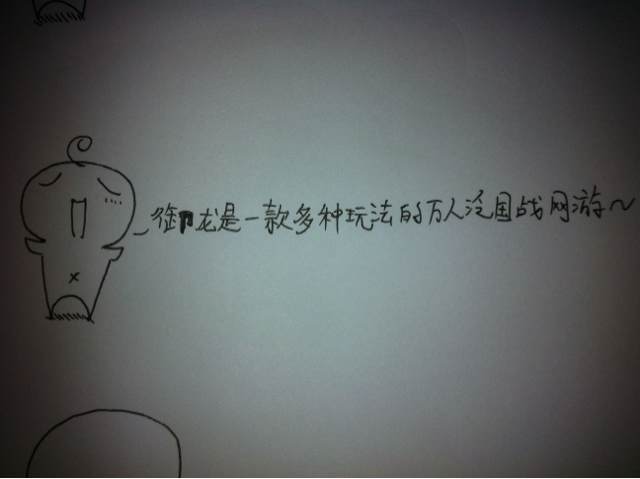 御龙是一款多种玩法的万人泾国战网游~